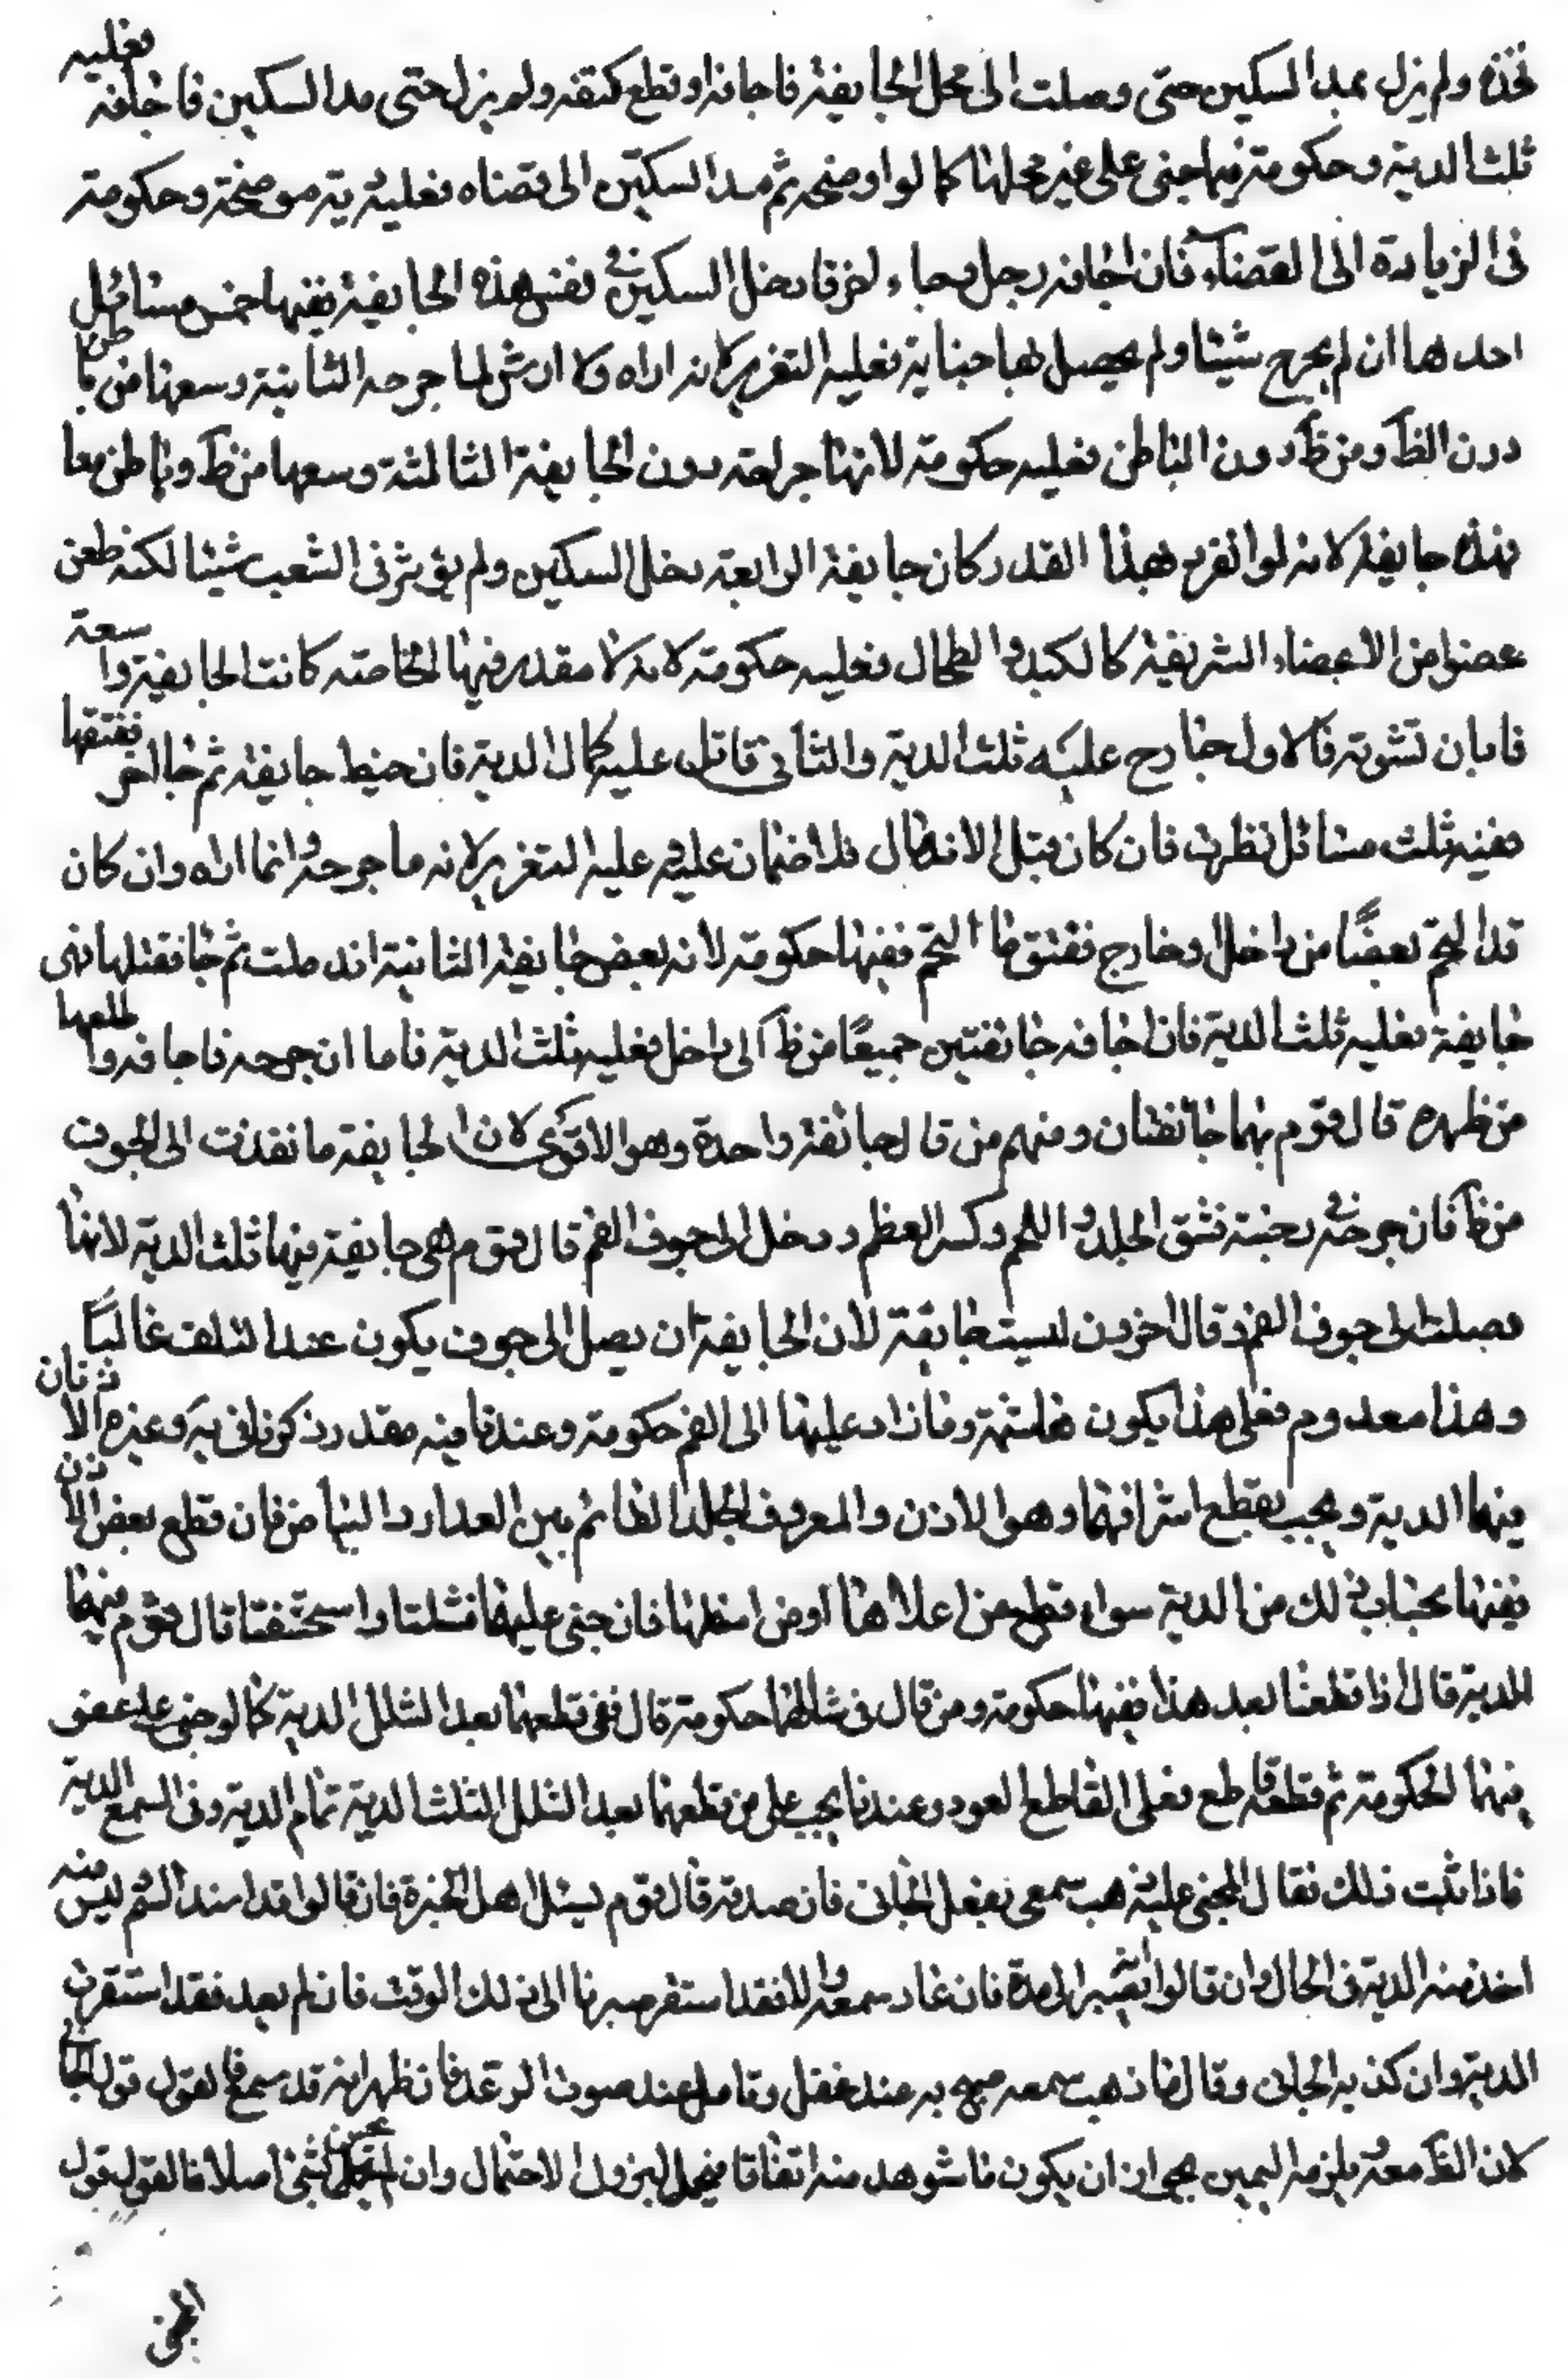 فخذه ولم يزل يمد السكين حتى وصلت الى محل الجايفة فاجافه او قطع كتفه ولم يزل حتى مد السكين فاجافه فعليه
ثلث الدية وحكومة فيما جنى على غير محلها كما لو اوضحه ثم مد السكين الى قفناه فعليه دية موضحة وحكومة
فى الزيادة الى القفاء فان اجافه رجل وجاء اخر فادخل السكين فى نفس هذه الجايفة ففيها خمس مسائل
احدها ان لم يجرح شيئا ولم يحصل بها جناية فعليه التعزير لانه اراه ولا ارش لما جرحه الثانية وسعها من باطن
دون الظ ومن ظ دون الباطن فعليه حكومة لانها جراحة دون الجايفة الثالثة وسعها من ظ وباطن معا
فهذه جايفة لانه لو انفرد بهذا القدر كان جايفة الرابعة دخل السكين ولم يؤثر فى الشعب شيئا لكنه طعن
عضوا من الاعضاء الشريفة كالكبد والطحال فعليه حكومة لانه لا مقدر فيها الخامسة كانت الجايفة واسعة
فابان حشوته فالاول جارح عليه ثلث الدية والثانى قاتل عليه كمال الدية فان خيط جايفة ثم جا اخر ففتقها
ففيه ثلث مسائل نظرت فان كان قبل الاندمال فلا ضمان عليه و عليه التعزير لانه ما جرحه وانما اراه وان كان
قد التحم بعضا من داخل او خارج ففتق ما التحم ففيها حكومة لانه بعض جايفة الثانية اندملت ثم جا ففتلها فهى
جايفة فعليه ثلث الدية فان اجافه جائفتين جميعًا من ظ الى داخل فعليه ثلث الدية فاما ان جرحه فاجافه واطلعها
من ظهره قال قوم هما جائفتان ومنهم من قال جائفة واحدة وهو الاقوى لان الجايفة ما نفذت الى الجوف
من ظ فان جرحه فى وجنته فشق الجلد و اللحم وكسر العظم ودخل الى جوف الفم قال قوم هى جايفة فيها ثلث الدية لانها
وصلت الى جوف الفم وقال اخرون ليست جايفة لان الجايفة ان يصل الى جوف يكون عند التلف غالبًا
وهذا معدوم فعلى هذا يكون هاشمة وما زاد عليها الى الفم حكومة وعندنا فيه مقدر ذكرناه فى يه وغيره الاذنان
فيهما الدية ويجب بقطع اشرافهما وهو الاذن والمعروف الجلد القائم بين العذار والبياض فان قطع بعض الاذن
ففيها بحساب ذلك من الدية سواء قطع من اعلاها او من اسفلها فان جنى عليهما فشلتا واستحشفتا قال قوم فيهما
الدية قال اذا قطعنا بعد هذا ففيها حكومة ومن قال فى شللهما حكومة قال ففى قطعهما بعد الشلل الدية كما لو جنى على عضو
فيها الحكومة ثم قطعه قاطع فعلى القاطع القود وعندنا يجب على من قطعهما بعد الشلل الثلث الدية تمام الدية وفى السمع الدية
فاذا ثبت ذلك فقال المجنى عليه ذهب سمعى بفعل الجانى فان صدقه قال قوم يسئل اهل الخبرة فان قالوا قد انسد السم ليس منه
اخذ منه الدية فى الحال وان قالوا نصبر الى مدة فان عاد سمعه والا فقد استقر صبرنا الى ذلك الوقت فان لم يعد فقد استقرت
الدية وان كذبه الجانى وقال ما ذهب سمعه صيح به عند غفل وتامل عند صوت الرعد فان ظهر انه قد سمع فالقول قول الجا
لان الظ معه و يلزمه اليمين بجواز ان يكون ما شوهد منه اتفاقا فيحلف ليزول الاحتمال وان لم يحس بشئ اصلا فالقول قول
المجنى